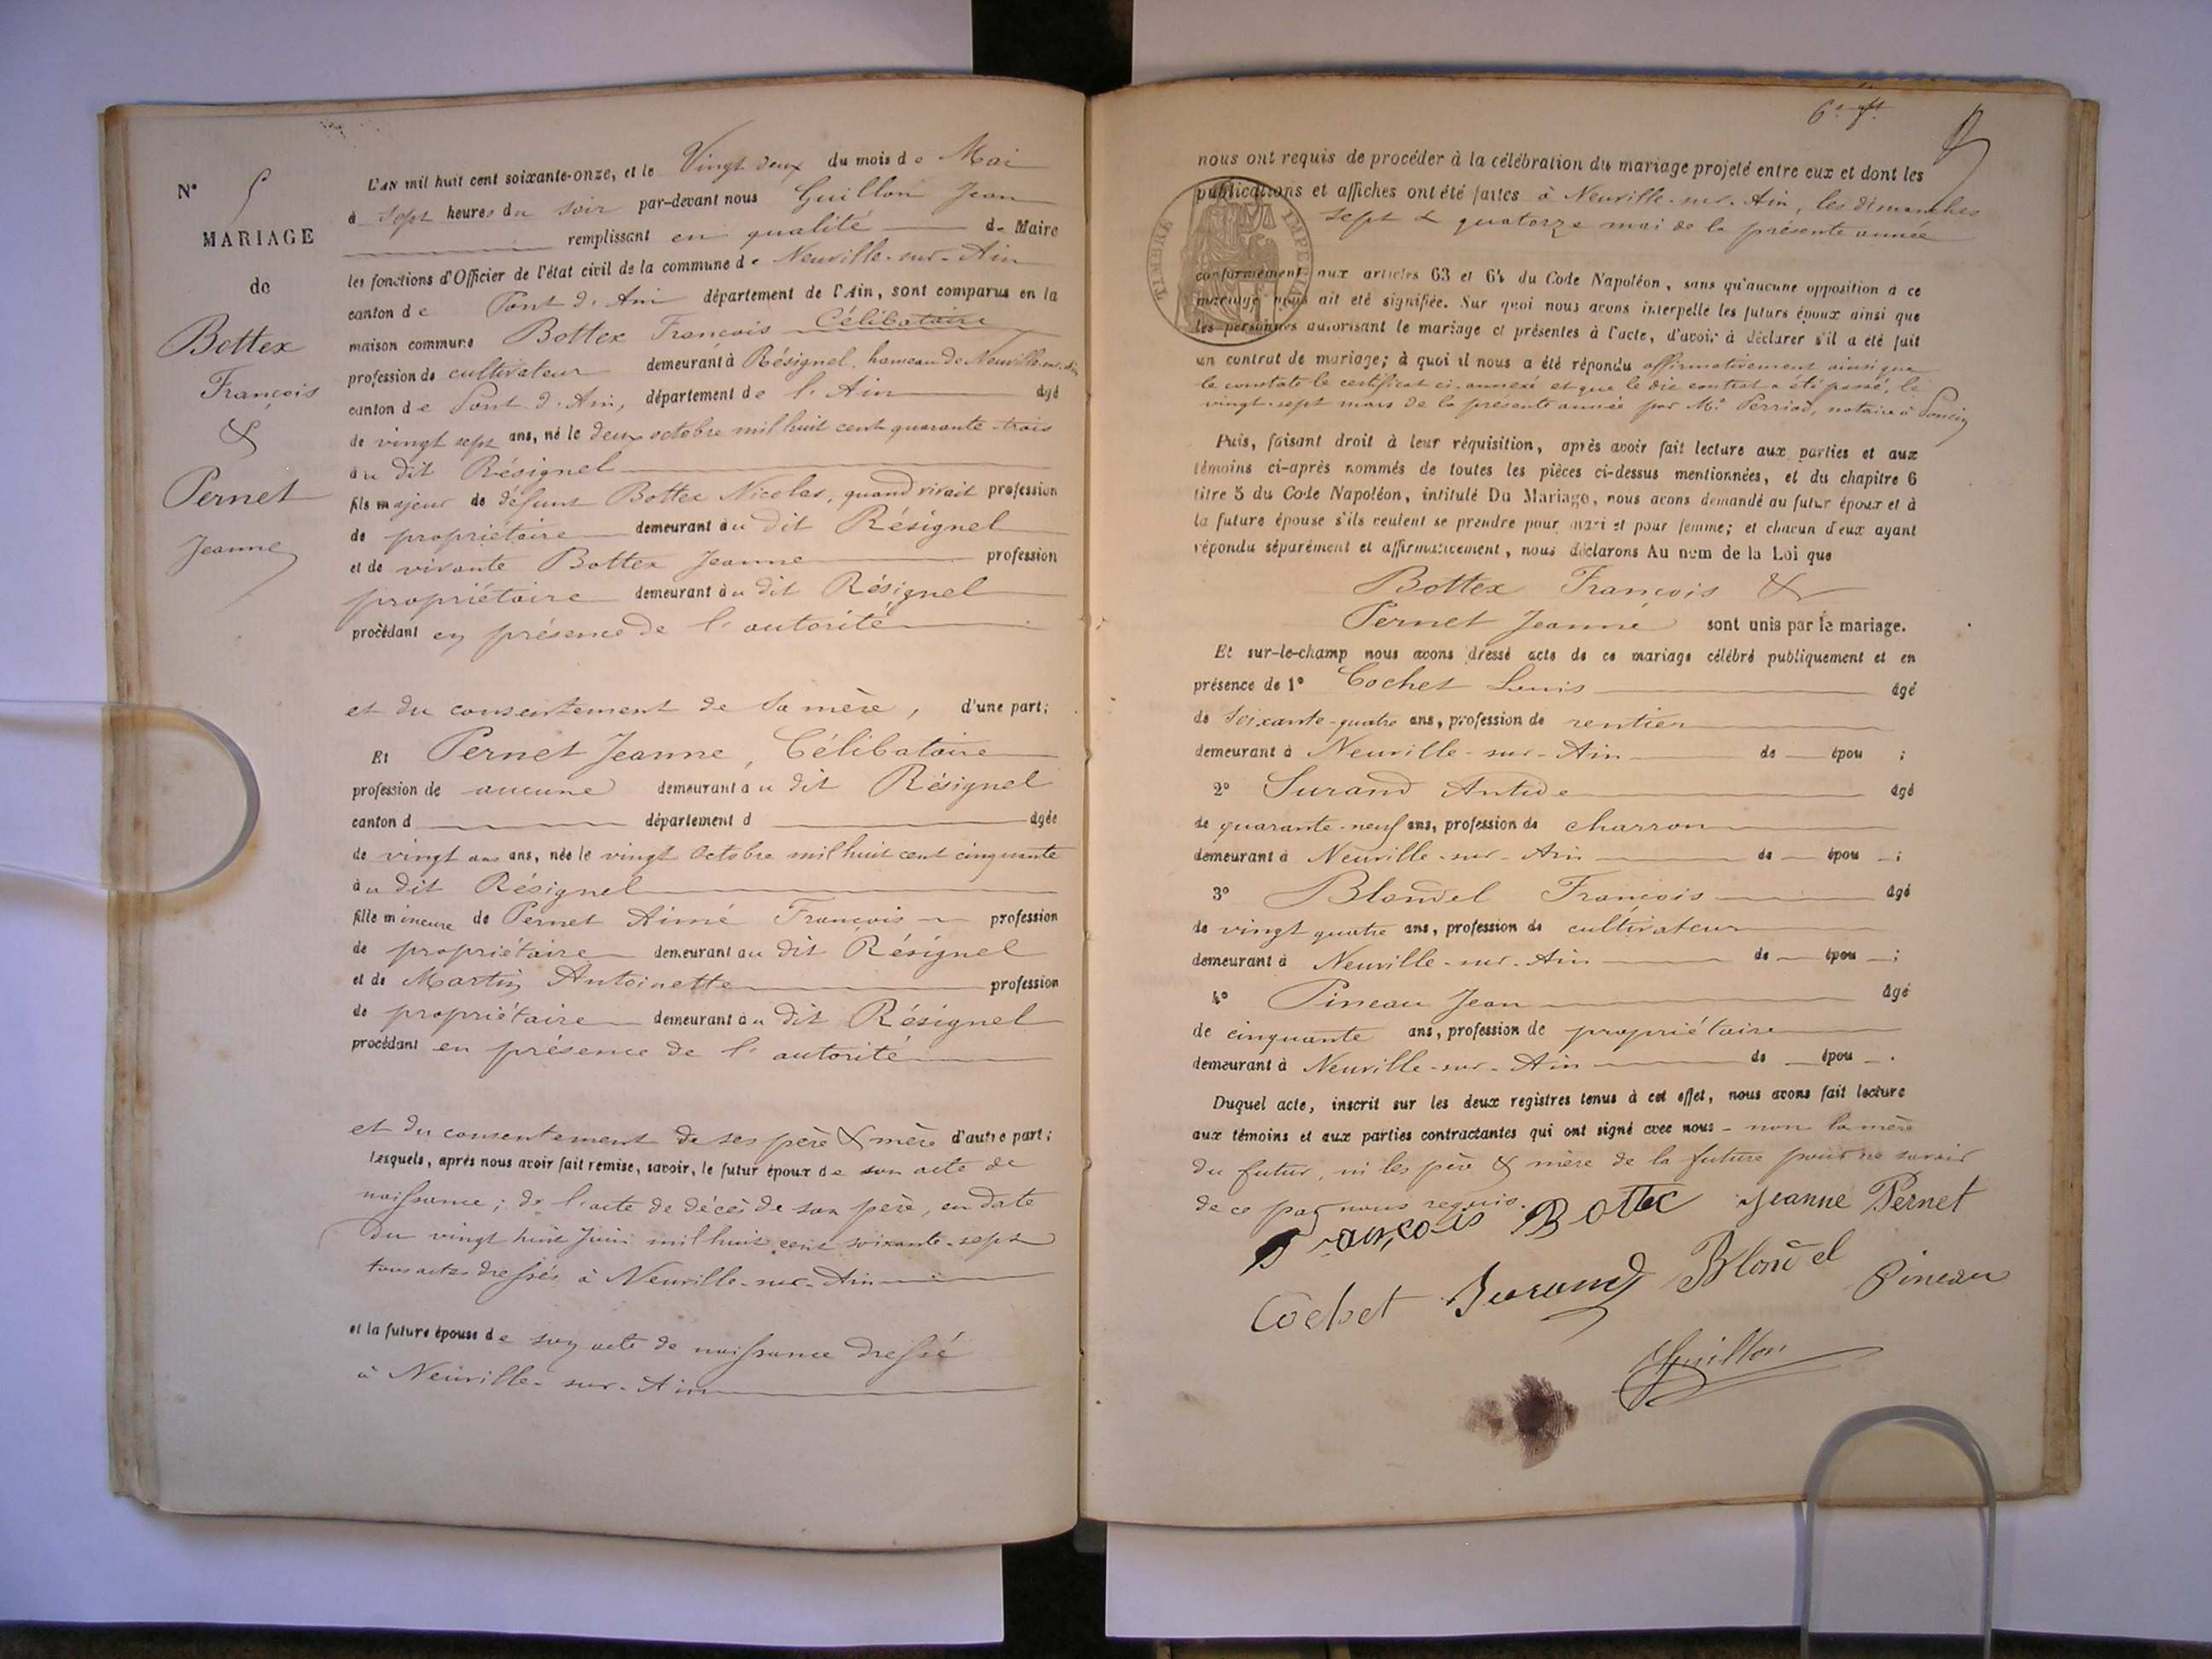 N° 5
MARIAGE
de
Bottex
François
&
Pernet
Jeanne
L'AN mil huit cent soixante-onze, et le Vingt deux du mois de Mai
à sept heures du soir par-devant nous Guillon Jean
remplissant en qualité de Maire
les fonctions d'Officier de l'état civil de la commune de Neuville-sur-Ain
canton de Pont d'Ain département de l'Ain, sont comparus en la
maison commune Bottex François Célibataire
profession de cultivateur demeurant à Résignel, hameau de Neuville-sur-Ain
canton de Pont d'Ain, département de l'Ain âgé
de vingt sept ans, né le deux octobre mil huit cent quarante-trois
au dit Résignel
fils majeur de défunt Bottex Nicolas, quand vivait profession
de propriétaire demeurant au dit Résignel
et de vivante Bottex Jeanne profession
propriétaire demeurant au dit Résignel
procédant en présence de l'autorité
et du consentement de sa mère, d'une part;
Et Pernet Jeanne, Célibataire
profession de aucune demeurant au dit Résignel
canton d département d âgée
de vingt ans ans, née le vingt Octobre mil huit cent cinquante
au dit Résignel
fille mineure de Pernet Aimé François profession
de propriétaire demeurant au dit Résignel
et de Martin Antoinette profession
de propriétaire demeurant au dit Résignel
procédant en présence de l'autorité
et du consentement de ses père & mère d'autre part;
Lesquels, après nous avoir fait remise, savoir, le futur époux de son acte de
naissance; de l'acte de décès de son père, en date
du vingt huit Juin mil huit cent soixante-sept
tous actes dressés à Neuville-sur-Ain
et la future épouse de son acte de naissance dressé
à Neuville-sur-Ain
nous ont requis de procéder à la célébration du mariage projeté entre eux et dont les
publications et affiches ont été faites à Neuville-sur-Ain, les dimanches
sept & quatorze mai de la présente année
TIMBRE IMPERIAL
conformément aux articles 63 et 64 du Code Napoléon, sans qu'aucune opposition à ce
mariage nous ait été signifiée. Sur quoi nous avons interpellé les futurs époux ainsi que
les personnes autorisant le mariage et présentes à l'acte, d'avoir à déclarer s'il a été fait
un contrat de mariage; à quoi il nous a été répondu affirmativement ainsi que
le constate le certificat ci-annexé et que le dit contrat a été passé, le
vingt-sept mars de la présente année par Me Perriod, notaire à Poncin
Puis, faisant droit à leur réquisition, après avoir fait lecture aux parties et aux
témoins ci-après nommés de toutes les pièces ci-dessus mentionnées, et du chapitre 6
titre 5 du Code Napoléon, intitulé Du Mariage, nous avons demandé au futur époux et à
la future épouse s'ils veulent se prendre pour mari et pour femme; et chacun d'eux ayant
répondu séparément et affirmativement, nous déclarons Au nom de la Loi que
Bottex François &
Pernet Jeanne sont unis par le mariage.
Et sur-le-champ nous avons dressé acte de ce mariage célébré publiquement et en
présence de 1° Cochet Louis âgé
de soixante-quatre ans, profession de rentier
demeurant à Neuville-sur-Ain de épou ;
2° Surand Antide âgé
de quarante-neuf ans, profession de charron
demeurant à Neuville-sur-Ain de épou ;
3° Blondel François âgé
de vingt quatre ans, profession de cultivateur
demeurant à Neuville-sur-Ain de épou ;
4° Pineau Jean âgé
de cinquante ans, profession de propriétaire
demeurant à Neuville-sur-Ain de épou .
Duquel acte, inscrit sur les deux registres tenus à cet effet, nous avons fait lecture
aux témoins et aux parties contractantes qui ont signé avec nous - non la mère
du futur, ni les père & mère de la future pour ne savoir
de ce par nous requis.
François Bottex Jeanne Pernet
Cochet Surand Blondel Pineau
Guillon